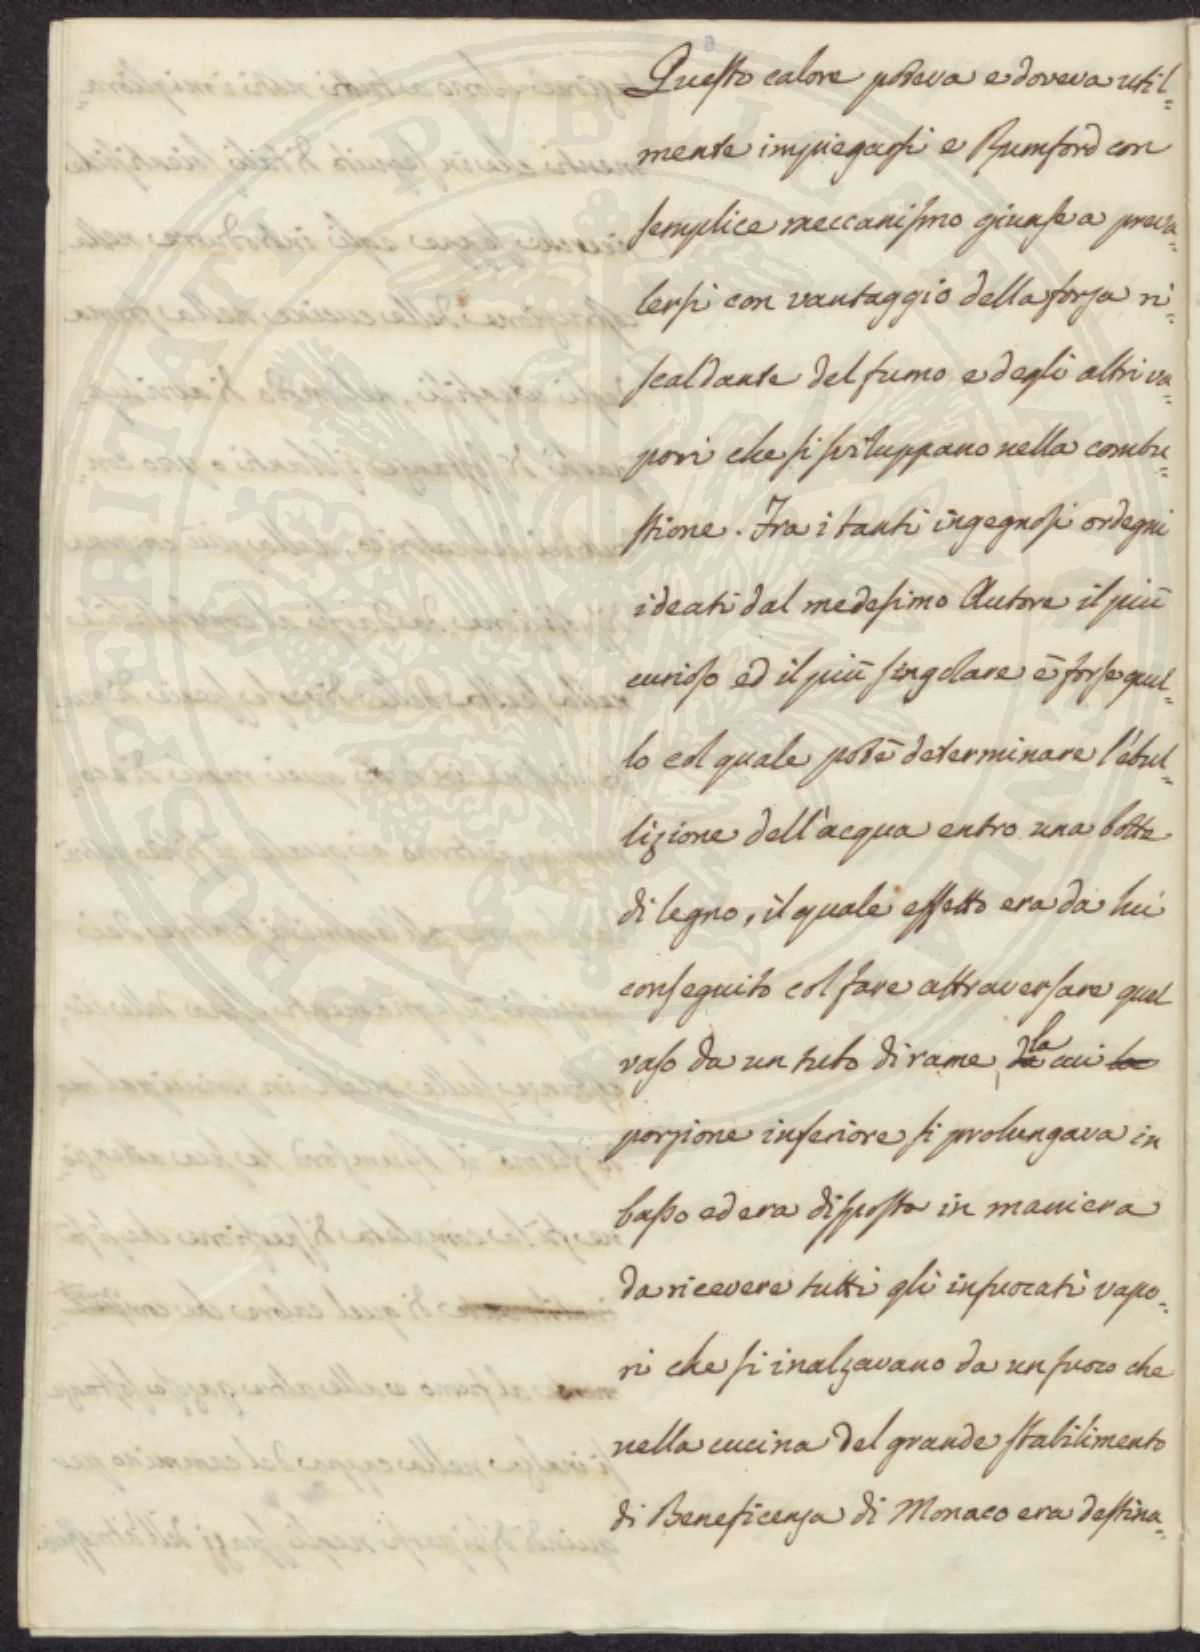 Questo calore poteva e doveva util=
mente impiegarsi e Rumford con
semplice meccanismo giunse a preva=
lersi con vantaggio della forza ri=
scaldante del fumo e degli altri va=
pori che si sviluppano nella combu=
stione. Fra i tanti ingegnosi ordegni
ideati dal medesimo Autore il più
curioso ed il più singolare è forse quel=
lo col quale potè determinare l'ebul=
lizione dell'acqua entro una botte
di legno, il quale effetto era da lui
conseguito col fare attraversare quel
vaso da un tubo di rame, la cui
porzione inferiore si prolungava in
basso ed era disposta in maniera
da ricevere tutti gli infuocati vapo=
ri che si inalzavano da un fuoco che
nella cucina del grande stabilimento
di Beneficenza di Monaco era destina=